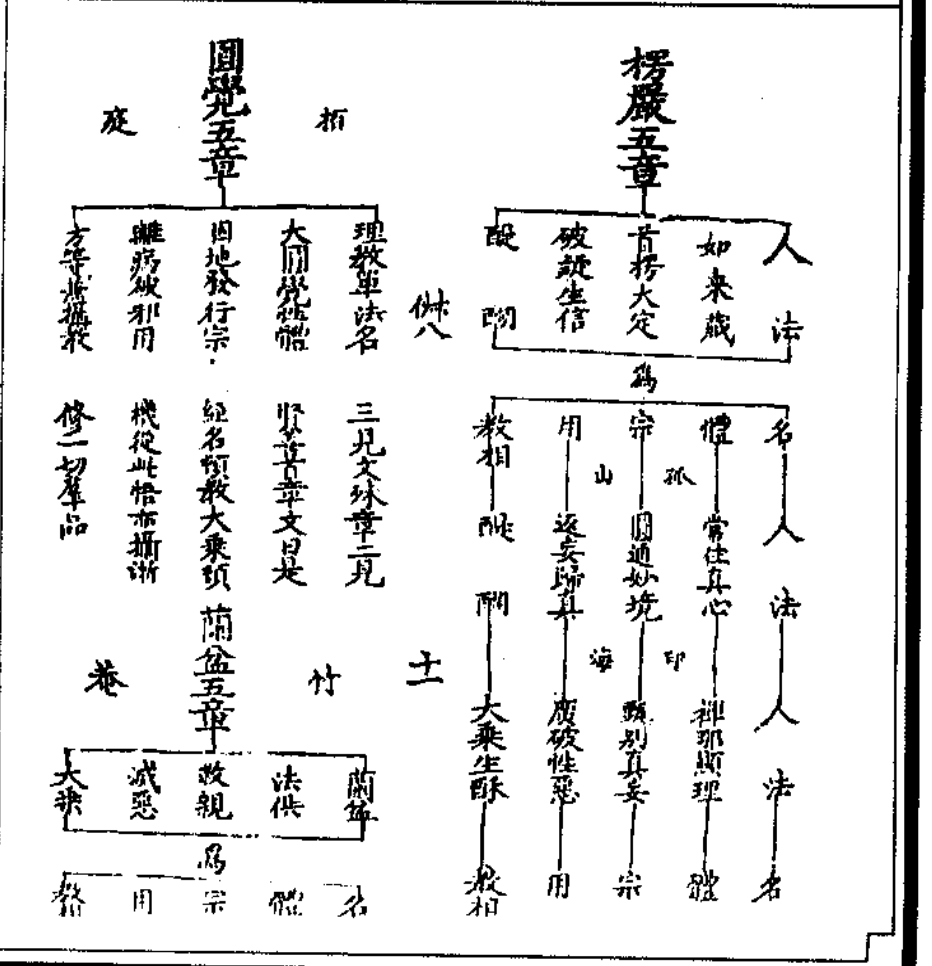 楞嚴五章
人法
如来藏
首楞大定
破疑生信
醍醐
為
名
體
宗
用
教相
孤山
人法
常住真心
圓通妙境
返妄歸真
醍醐
印海
人法
禅那顯理
甄別真妄
廣破性惡
大乗生酥
名
體
宗
用
教相
圓覺五章
栢庭
理教單法名
大圓覺體
因地發行宗
離病破邪用
方等攝教
三見文殊章二見
賢善首章文曰是
經名頓教大乗頓
機從此悟亦攝漸
修一切羣品
蘭盆五章
竹菴
蘭盆
法供
救親
滅惡
大乗
為
名
體
宗
用
教相